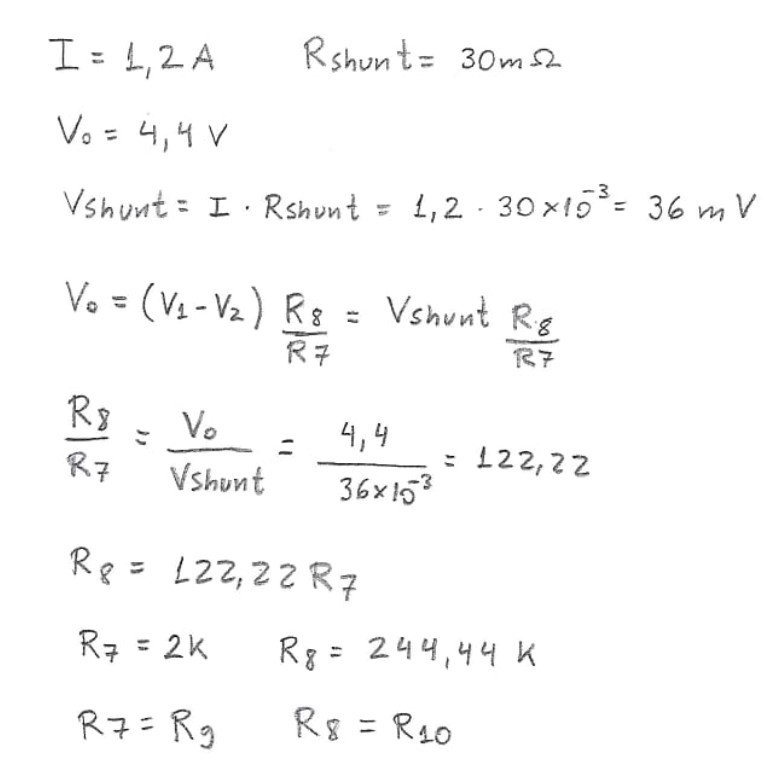 I = 1,2 A Rshunt = 30 mΩ
Vo = 4,4 V
Vshunt = I · Rshunt = 1,2 · 30 ×10⁻³ = 36 mV
Vo = (V1 - V2) R8/R7 = Vshunt R8/R7
R8/R7 = Vo/Vshunt = 4,4/36×10⁻³ = 122,22
R8 = 122,22 R7
R7 = 2K R8 = 244,44 K
R7 = R9 R8 = R10